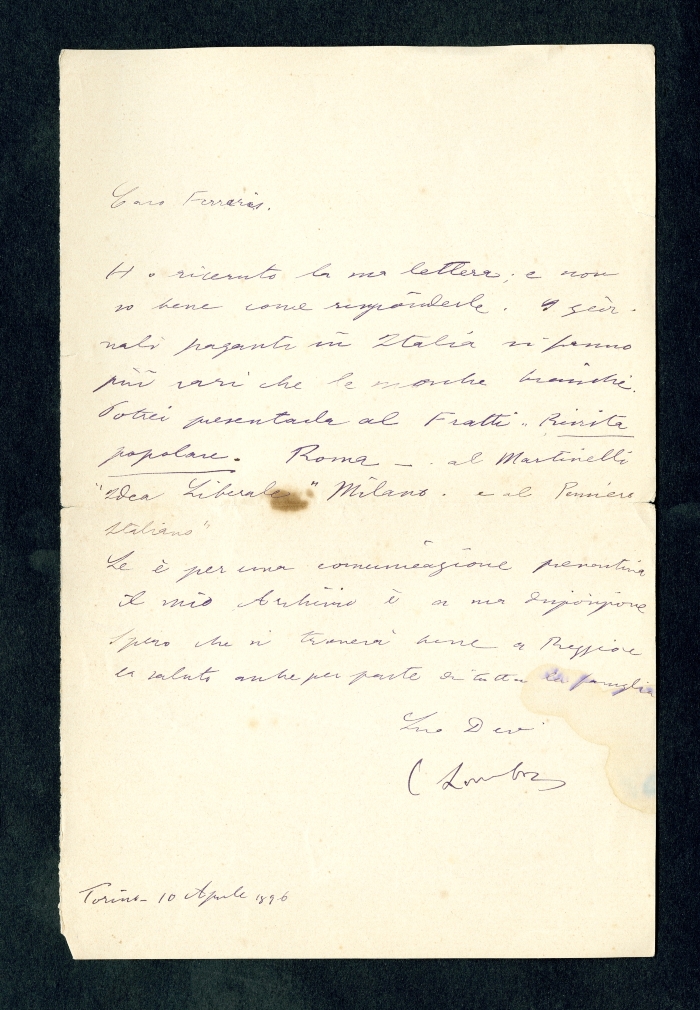 Caro Ferraris.
Ho ricevuto la sua lettera; e non
so bene come risponderle. I gior-
nali paganti in Italia si fanno
più rari che le mosche bianche.
Potrei presentarla al Fratti "Rivista
popolare". Roma - al Martinelli
"Idea Liberale" Milano. e al Pensiero
Italiano"
Se è per una comunicazione preventiva
il mio Archivio è a sua disposizione
Spero che si troverà bene a Reggio e
la saluto anche per parte di tutta la famiglia
Suo Dev
C Lombroso
Torino - 10 Aprile 1896